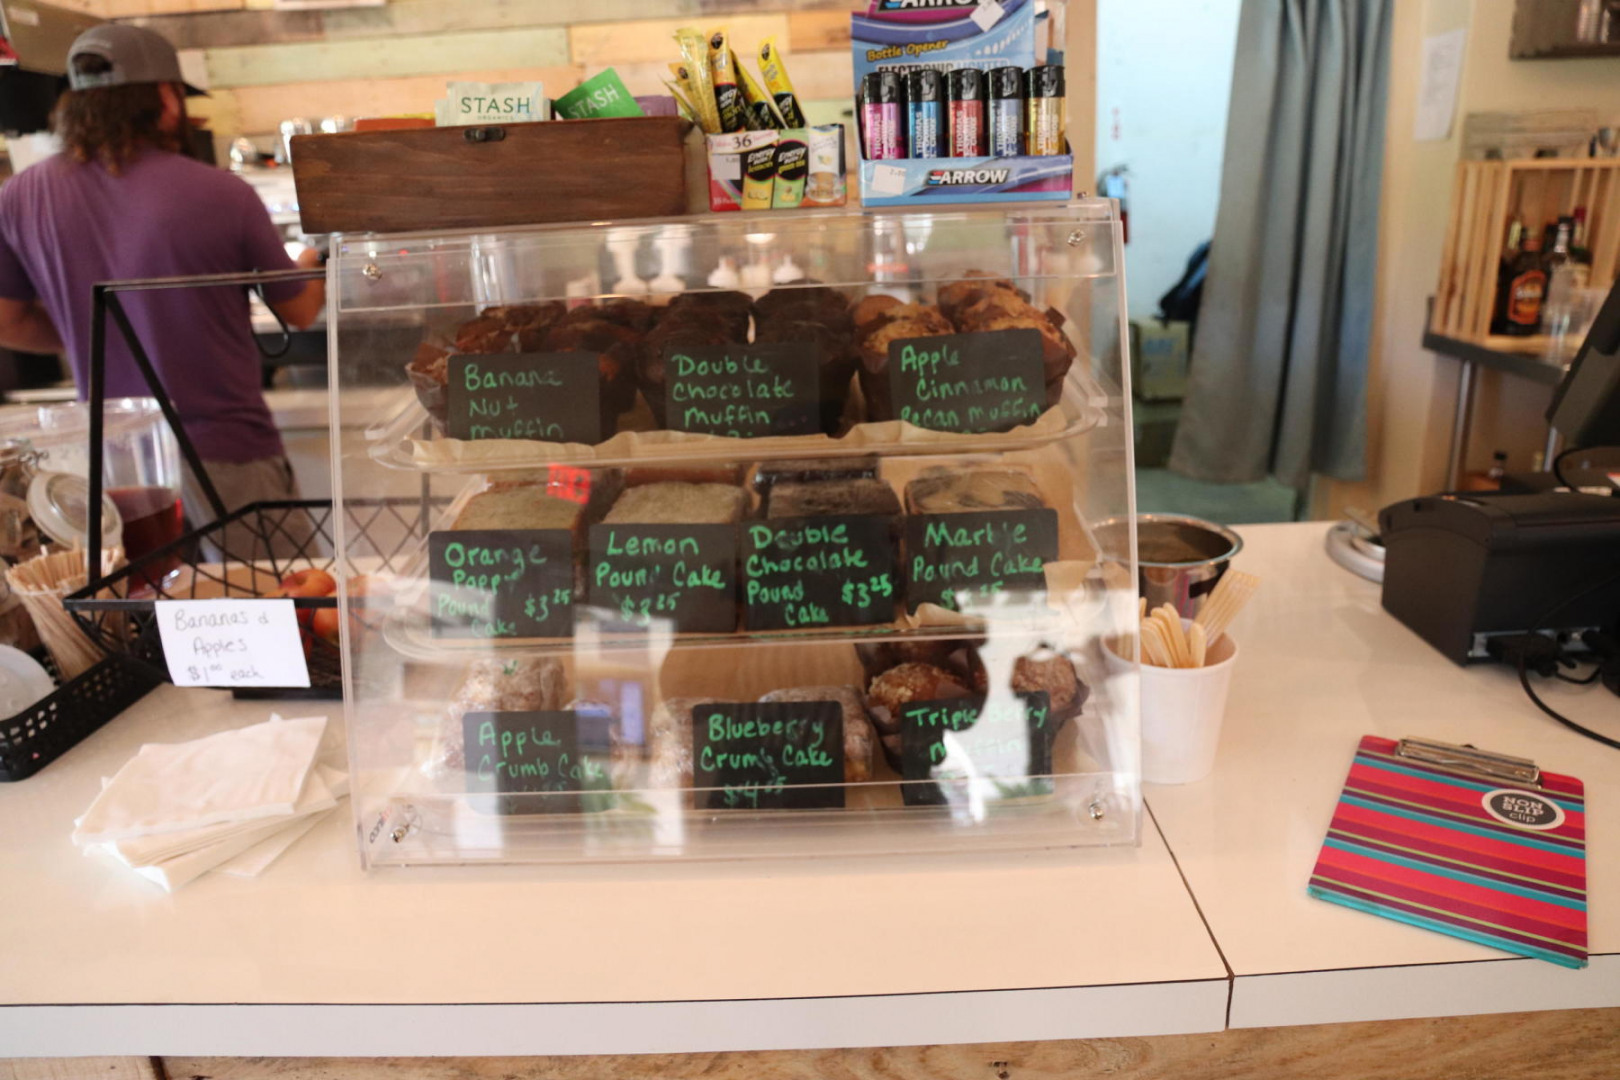 STASH
ORGANICS
STASH
36
ARROW
Bottle Opener
ELECTRONIC LIGHTER
ARROW
Banana
Nut
Muffin
Double
Chocolate
Muffin
Apple
Cinnamon
Pecan Muffin
Orange
Poppy
Pound $3.25
Cake
Lemon
Pound Cake
$3.25
Double
Chocolate
Pound $3.25
Cake
Marble
Pound Cake
Apple
Crumb Cake
Blueberry
Crumb Cake
Triple Berry
Muffin
Bananas &
Apples
$1.00 each
NON
SLIP
clip